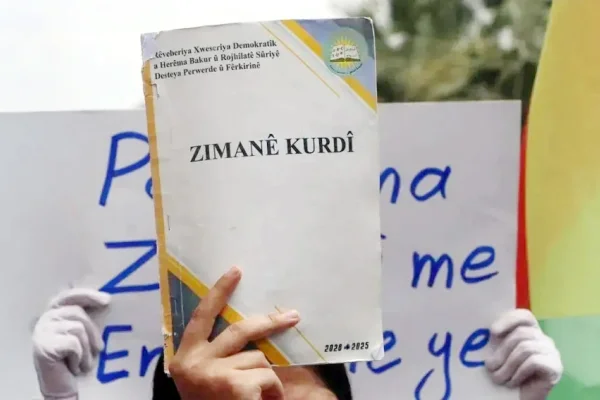 Rêveberiya Xweseriya Demokratîk
a Herêma Bakur û Rojhilatê Sûriyê
Desteya Perwerde û Fêrkirinê
ZIMANÊ KURDÎ
2025
me
ye